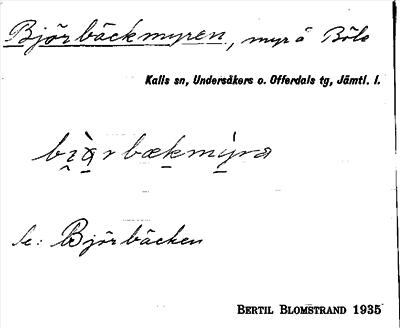 Björbäckmyren, myr å Böle
Kalls sn, Undersåkers o. Offerdals tg, Jämtl. l.
Se: Björbäcken
BERTIL BLOMSTRAND 1935